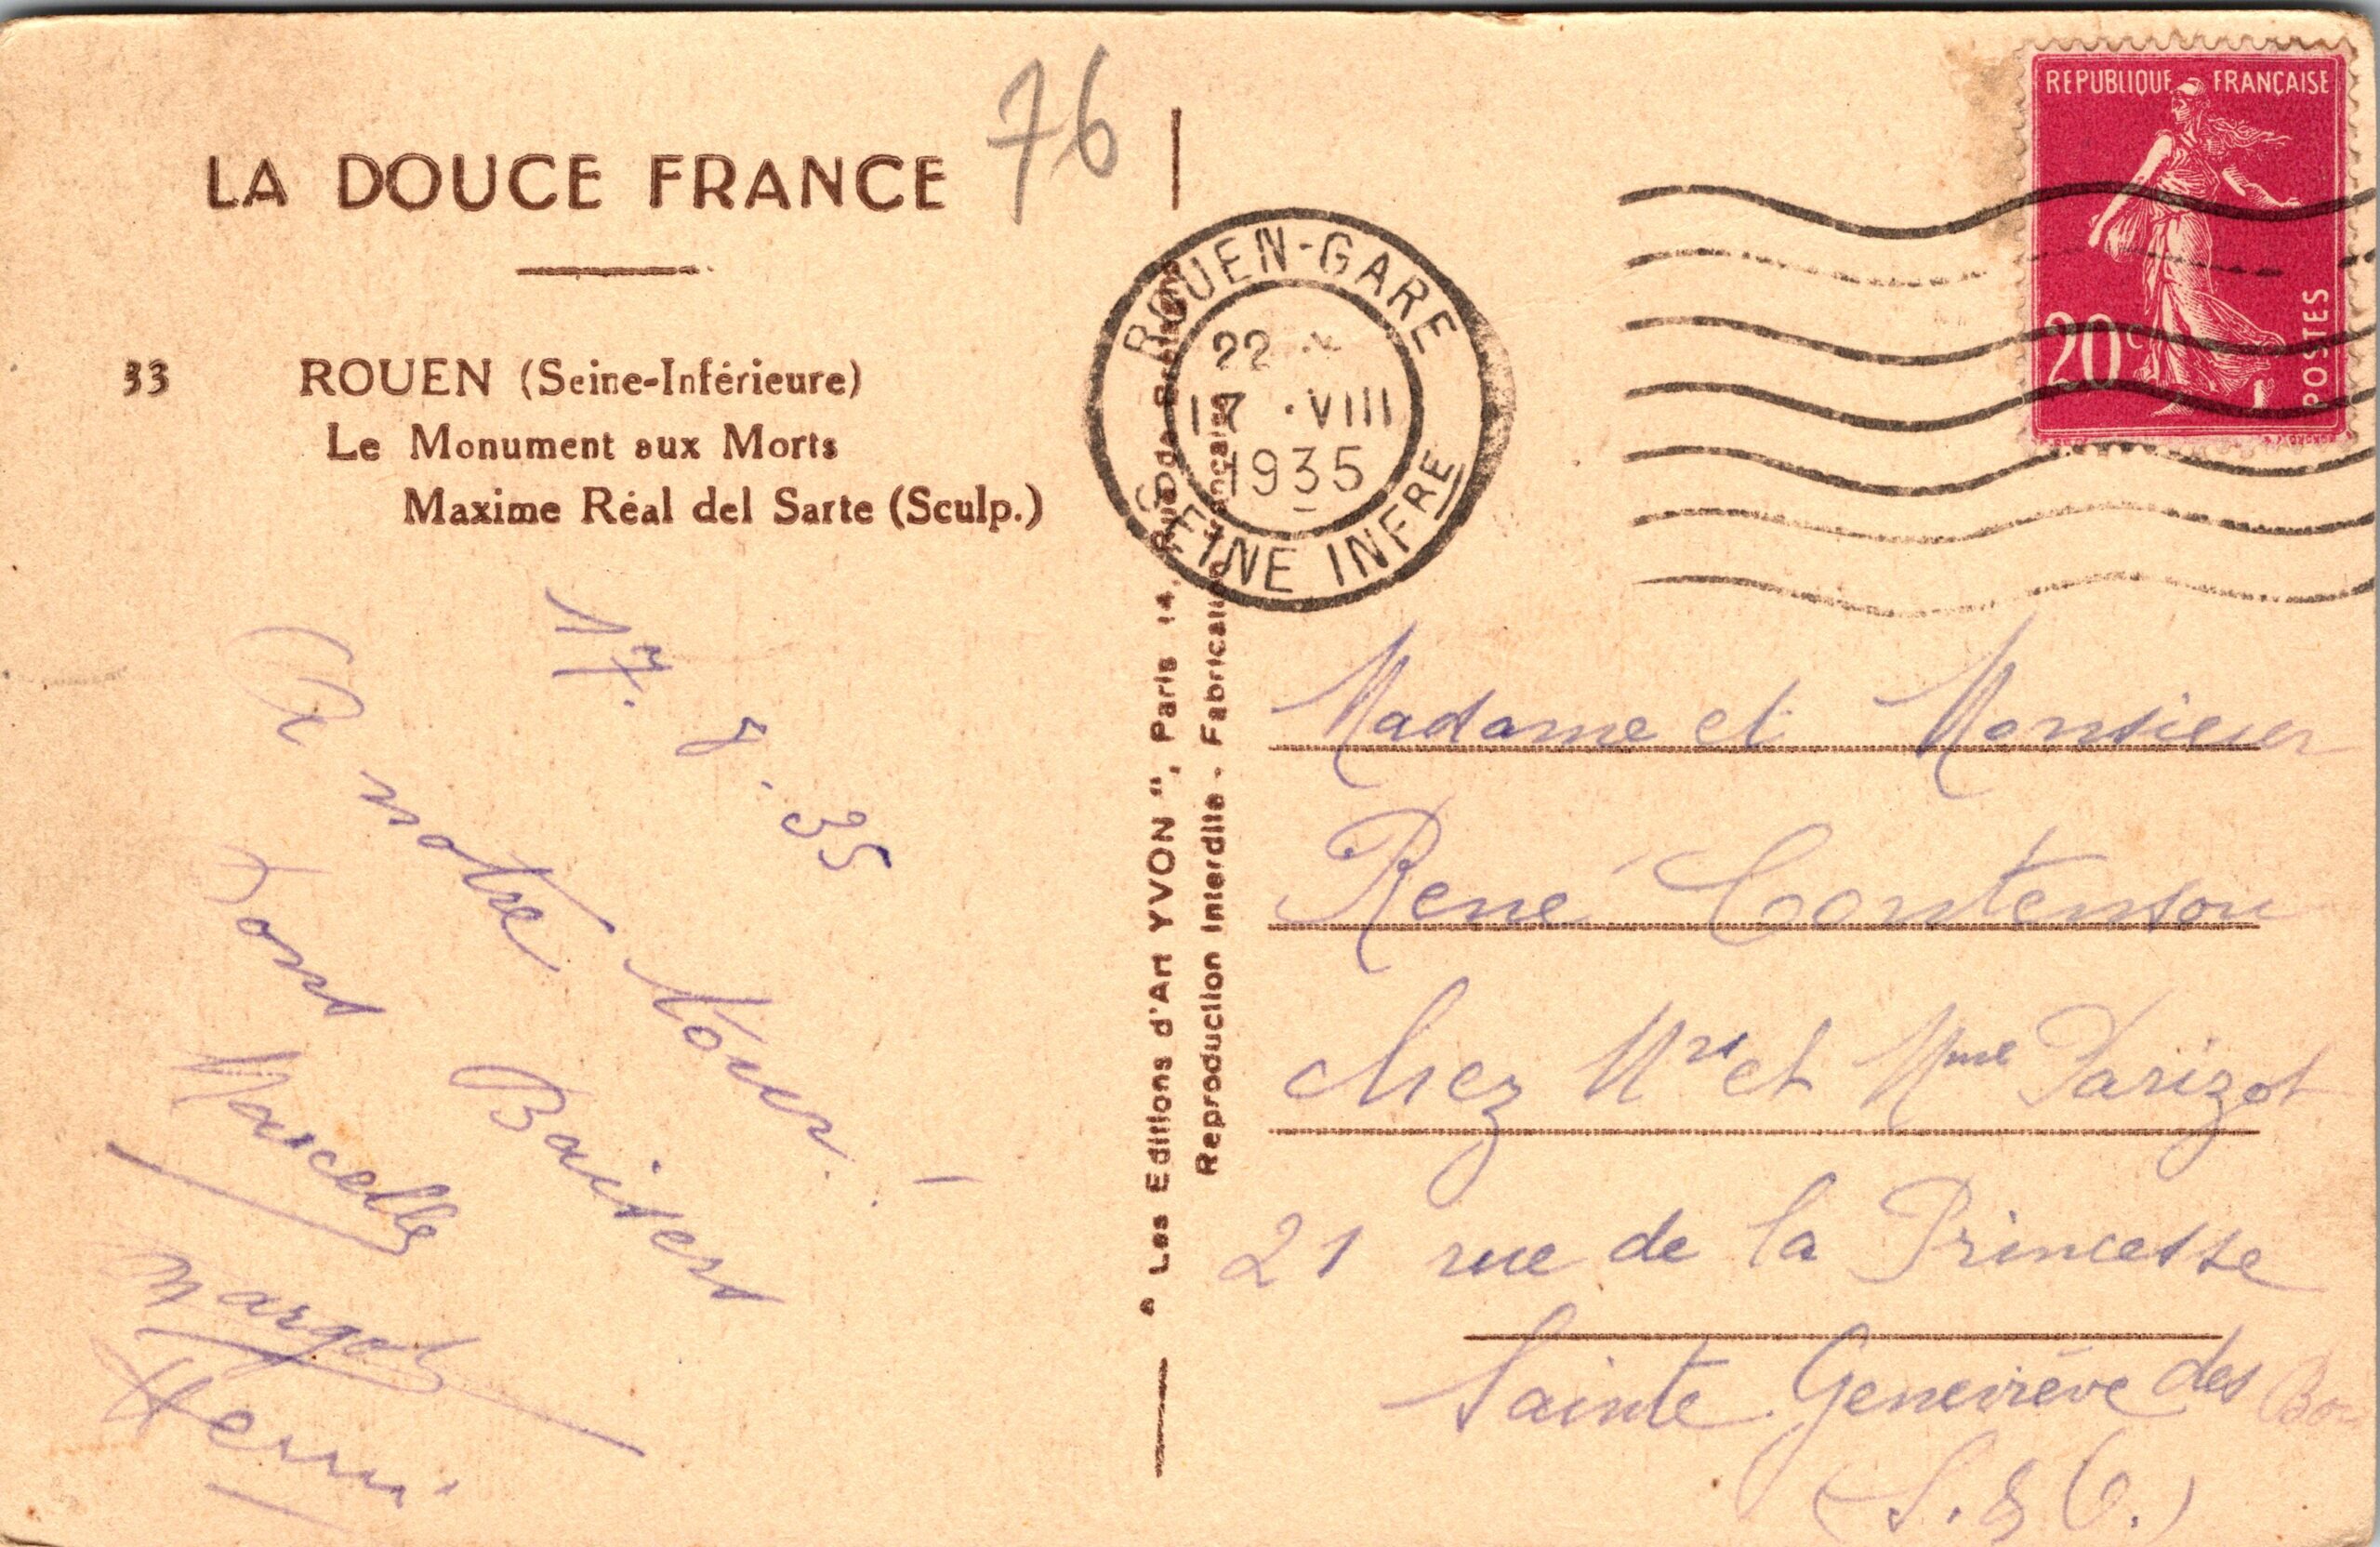 LA DOUCE FRANCE
76
33 ROUEN (Seine-Inférieure)
Le Monument aux Morts
Maxime Réal del Sarte (Sculp.)
17. 8. 35
A notre tour. -
Bons Baisers
Marcelle
Margot
Henri
" Les Editions d'Art YVON ", Paris 14, Rue de
Reproduction Interdite - Fabrication Française
ROUEN-GARE
22
17 ·VIII
1935
SEINE INFRE
REPUBLIQUE FRANÇAISE
20c
POSTES
Madame et Monsieur
René Contenson
chez Mr et Mme Parizot
21 rue de la Princesse
Sainte Geneviève des
(S. & O.)